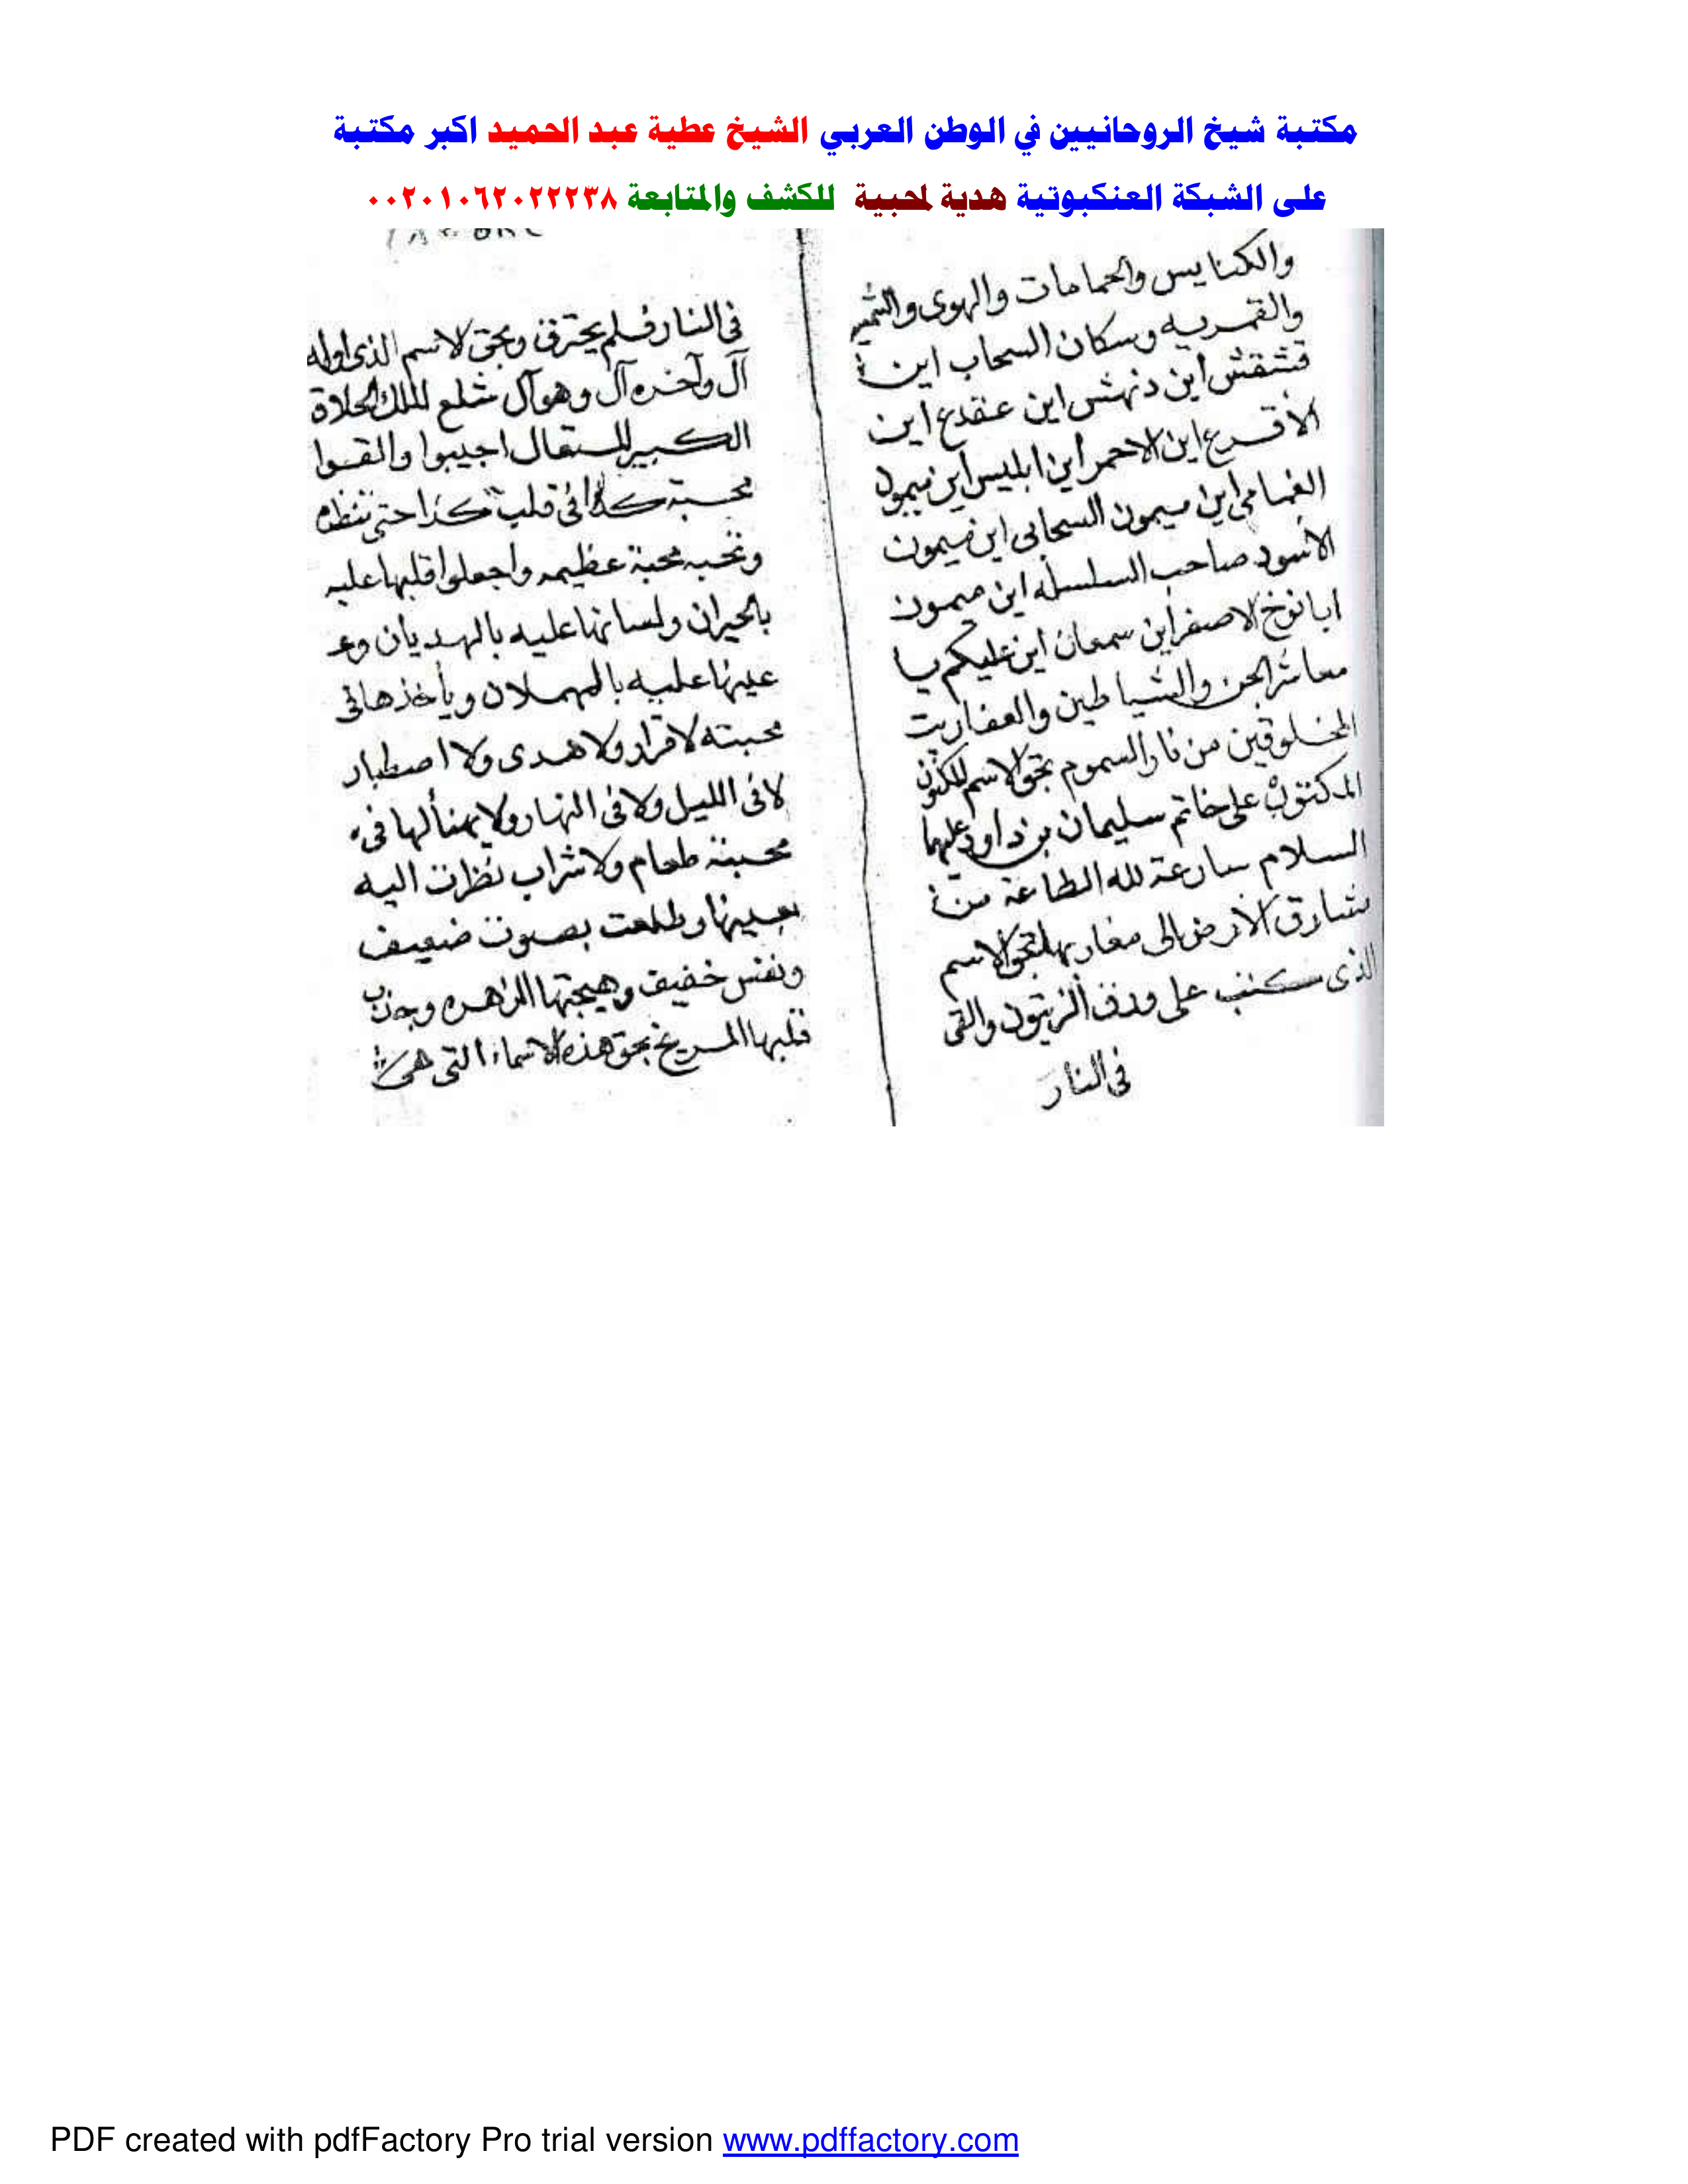 مكتبة شيخ الروحانيين في الوطن العربي الشيخ عطية عبد الحميد اكبر مكتبة
على الشبكة العنكبوتية هدية لمحبية للكشف والمتابعة ٠٠٢٠١٠٦٢٠٢٢٢٣٨
والكنايس والحمامات والهوى
والقمريه وسكان السحاب اين
قشقش اين دنهش اين عنقدع اين
الاقرع اين الاحمر اين ابليس اين ميمون
الغمامى اين ميمون السحابى اين ميمون
الاسود صاحب السلسله اين ميمون
ابا نوخ الاصفر اين سمعان اين عليكم يا
معاشر الجن والشياطين والعفاريت
المخلوقين من نار السموم بحق الاسم المكنون
على خاتم سليمان بن داود عليهما
السلام سارعة لله الطاعة من
شارق الارض الى مغاربها بحق الاسم
الذى كتب على ورق الزيتون والقى
فى النار
فى النار فلم يحترق وبحق الاسم الذى اوله
آل وآخره آل وهو آل شلع
الكبير المتعال اجيبوا والقوا
محبة كذا فى قلب كذا حتى
وتحبه محبة عظيمه واجعلوا قلبها عليه
بالحيران ولسانها عليه بالهديان وع
عينها عليه بالهملان ويأخذها فى
محبته لا قرار ولا هدى ولا اصطبار
لا فى الليل ولا فى النهار ولا يهنأ لها فى
محبته طعام ولا شراب نظرت اليه
بعينها وطلعت بصوت ضعيف
ونفس خفيف وهيجتها الزهره وجذب
قلبها المريخ بحق هذه الاسماء التى هى
PDF created with pdfFactory Pro trial version www.pdffactory.com